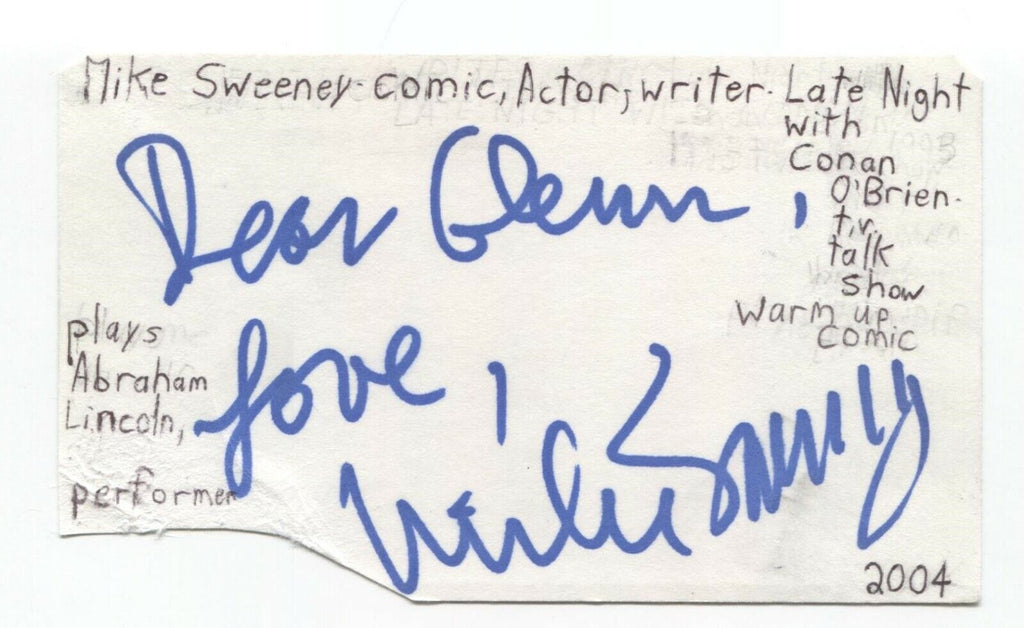 Mike Sweeney-comic, Actor, writer. Late Night
with
Conan
O'Brien-
t.v.
talk
show
warm up
comic
Dear Glenn,
plays
Abraham
Lincoln,
performer
Love,
Mike Sweeney
2004